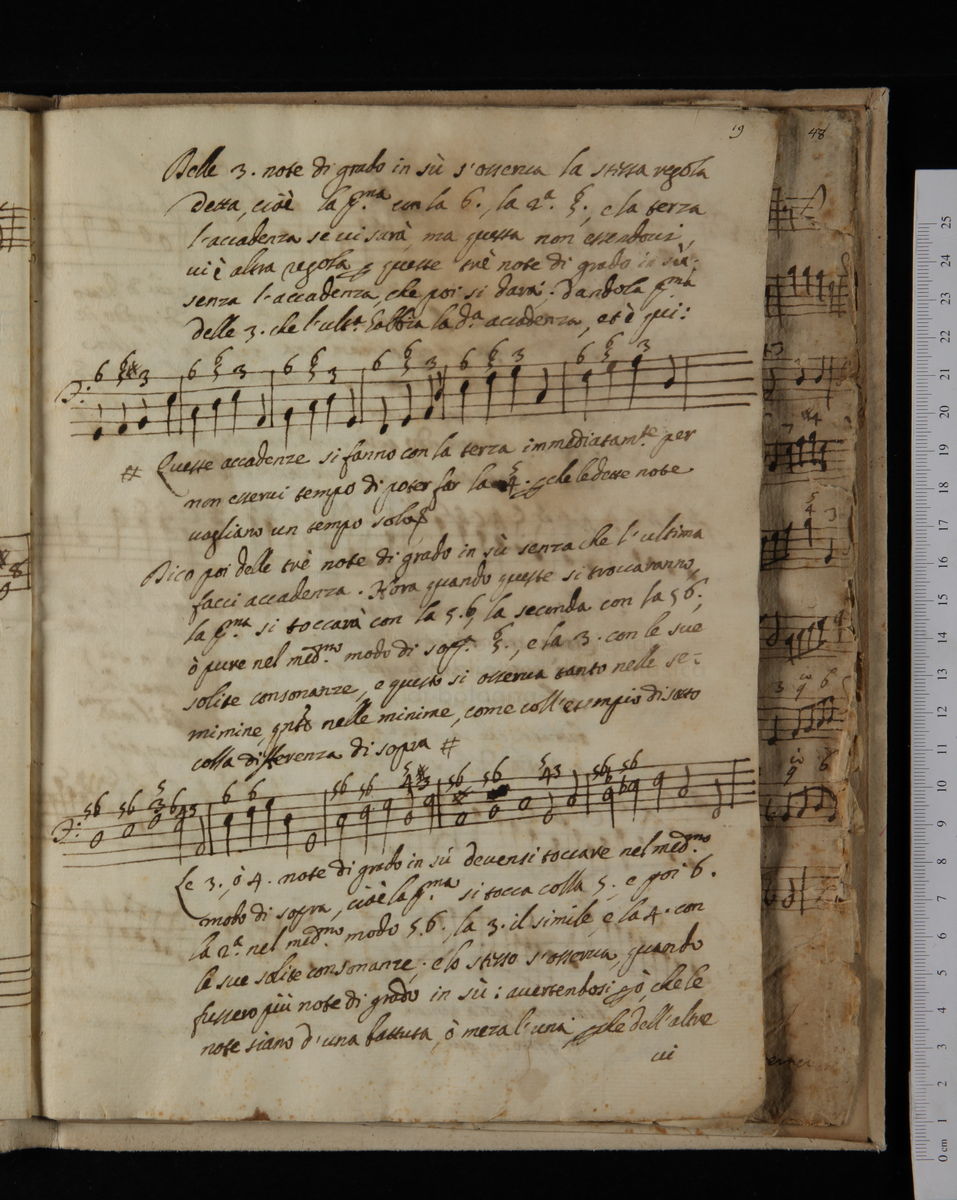 19
48
Delle 3. note di grado in sù s'osserva la stessa regola
detta, cioè la p.ma con la 6., la 2.a 6 5., e la terza
l'accadenza se vi sarà, ma questa non essendovi,
vi è altra regola p queste trè note di grado in sù,
senza l'accadenza, che poi si darà. Dandola p.ma
delle 3. che l'ult.a habbia la d.a accadenza, et è qui:
6 6 5 # 3 6 6 5 3 6 6 5 3 6 6 5 3 6 6 5 3 6 6 5 3
# Queste accadenze si fanno con la terza immediatam.te per
non esservi tempo di poter far la 5 4. p che le dette note
vagliano un tempo solo
Dico poi delle trè note di grado in sù senza che l'ultima
facci accadenza. Hora quando queste si troccaranno,
la p.ma si toccarà con la 5.6, la seconda con la 56;
ò pure nel med.mo modo di sop.a 6 5., e la 3. con le sue
solite consonanze, e questo si osserva tanto nelle se-
mimine, q.nto nelle minime, come coll'esempio di sotto
colla differenza di sopra #
56 56 5 3 6 43 6 6 56 56 5 4 # 3 56 56 5 43 56 56
Le 3., ò 4. note di grado in sù devensi toccare nel med.mo
modo di sopra, cioè la p.ma si tocca colla 5. e poi 6.
la 2.a nel med.mo modo 5.6., la 3. il simile, e la 4. con
le sue solite consonanze; e lo stesso s'osserva, quando
fussero più note di grado in sù: avertendosi p ò, che le
note siano d'una battuta, ò meza l'una, p che dell'altre
vi